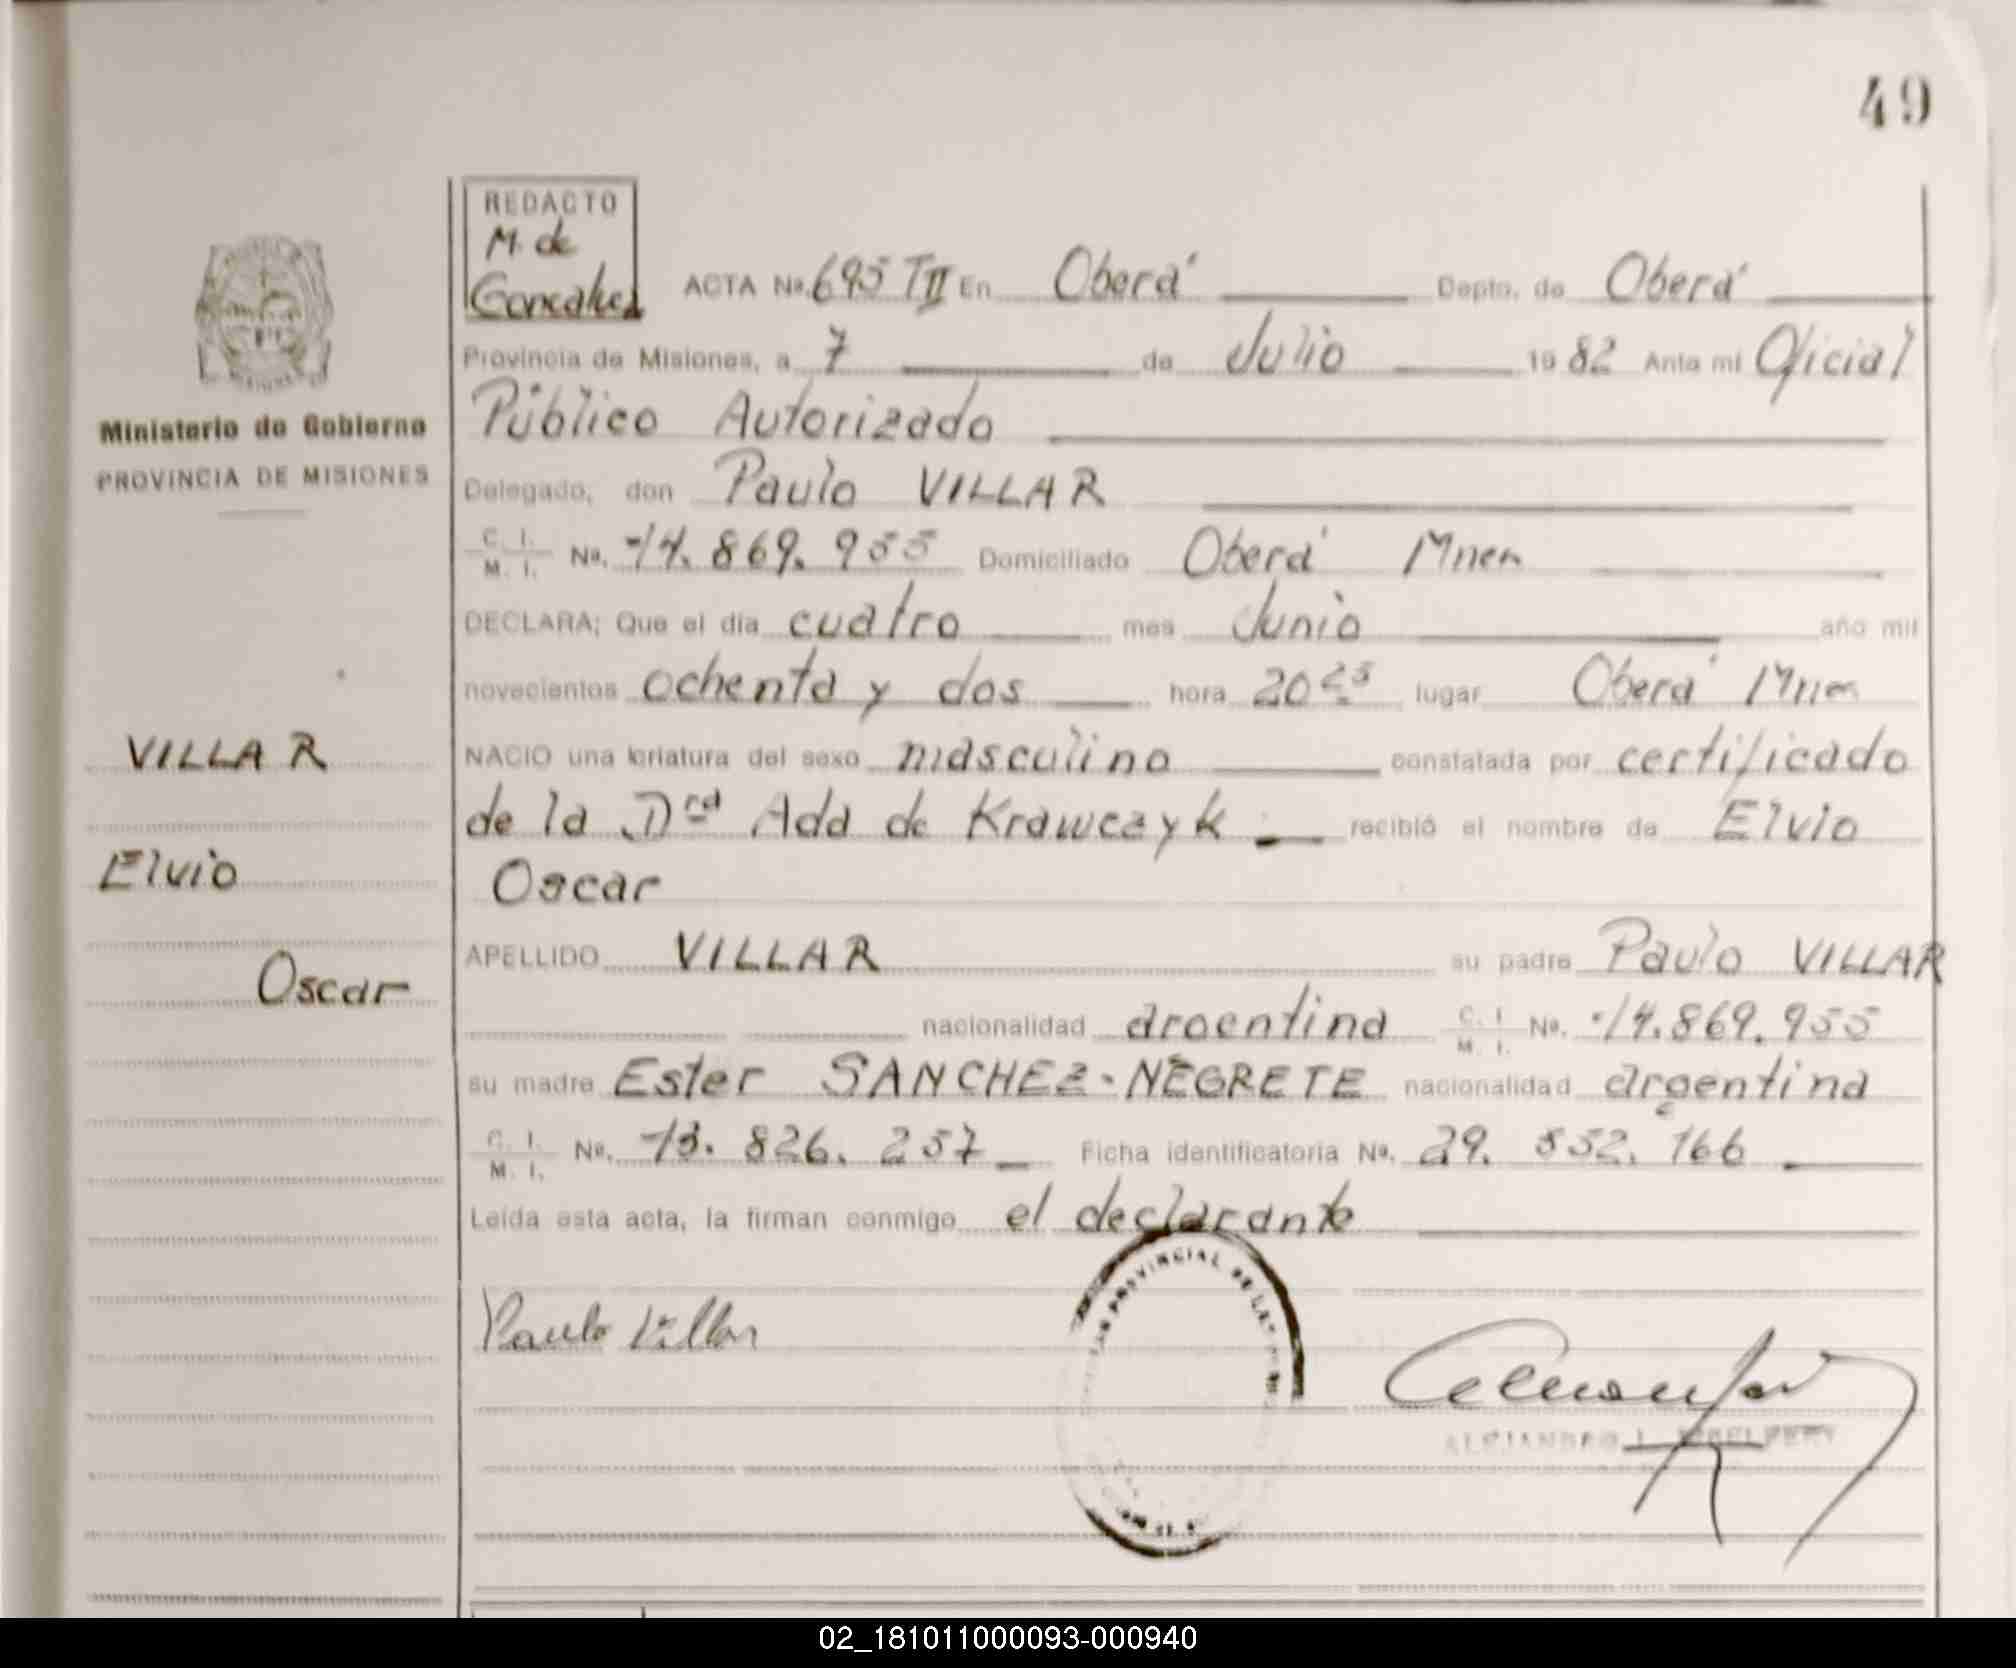 49
REDACTO
M. de
Gonzalez
ACTA Nº. 695 TII En Oberá Depto. de Oberá
Provincia de Misiones, a 7 de Julio 1982 Ante mi Oficial
Público Autorizado
Ministerio de Gobierno
PROVINCIA DE MISIONES
Delegado, don Paulo VILLAR
C. I.
M. I. Nº. 14.869.955 Domiciliado Oberá Mnes
DECLARA; Que el día cuatro mes Junio año mil
novecientos ochenta y dos hora 20 lugar Oberá Mnes
VILLAR
NACIO una criatura del sexo masculino constatada por certificado
de la Dra Ada de Krawczyk recibió el nombre de Elvio
Elvio
Oscar
Oscar
APELLIDO VILLAR su padre Paulo VILLAR
nacionalidad argentina C. I.
M. I. Nº. 14.869.955
su madre Ester SANCHEZ-NEGRETE nacionalidad argentina
C. I.
M. I. Nº. 13.826.257 Ficha identificatoria Nº. 29.552.166
Leída esta acta, la firman conmigo el declarante
PROVINCIAL DE LAS
Paulo Villar
ALEJANDRO
02_181011000093-000940